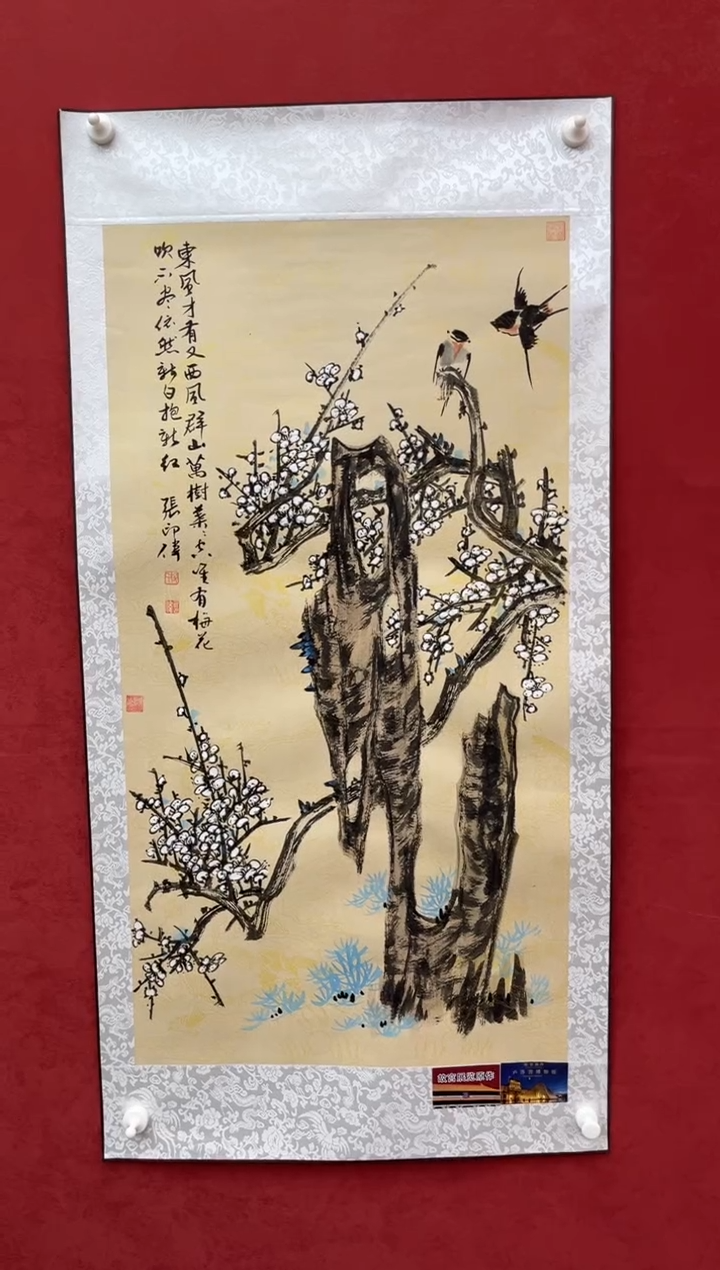 東風才有又西風群山萬樹葉〻空唯有梅花
吹不尽依然新白抱新红
張印偉
故宫展览原作